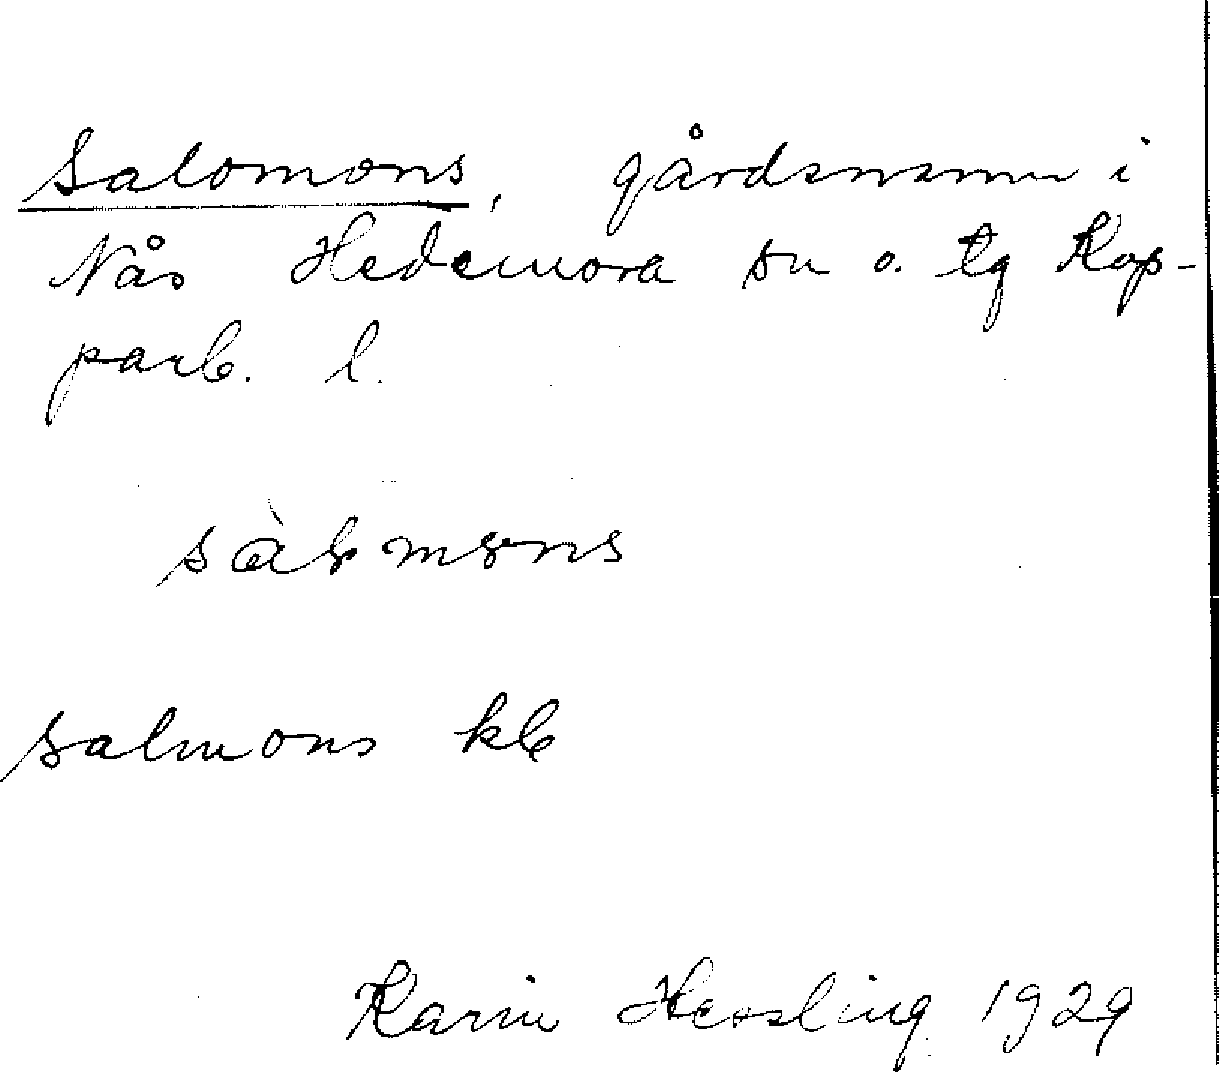 Salomons, gårdsnamn i
Nås Hedemora sn o. tg Kop-
parb. l.
salmons kb
Karin Hessling 1929